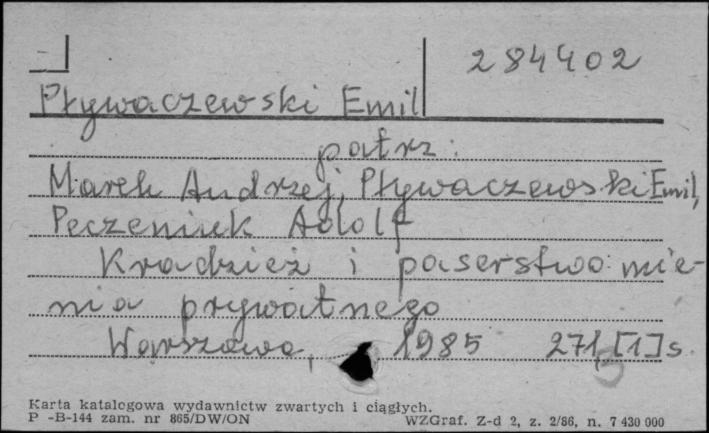 284402
Pływaczewski Emil
patrz:
Marek Andrzej, Pływaczewski Emil,
Peczeniuk Adolf
Kradzież i paserstwo mie-
nia prywatnego
Warszawa, 1985 271,[1]s.
Karta katalogowa wydawnictw zwartych i ciągłych.
P -B-144 zam. nr 865/DW/ON WZGraf. Z-d 2, z. 2/86, n. 7 430 000